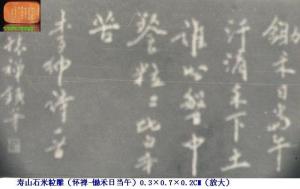 锄禾日当午
汗滴禾下土
谁知盘中
餐粒粒皆辛
苦
李绅诗一首
寿山石米粒雕（怀禅—锄禾日当午）0.3×0.7×0.2CM（放大）